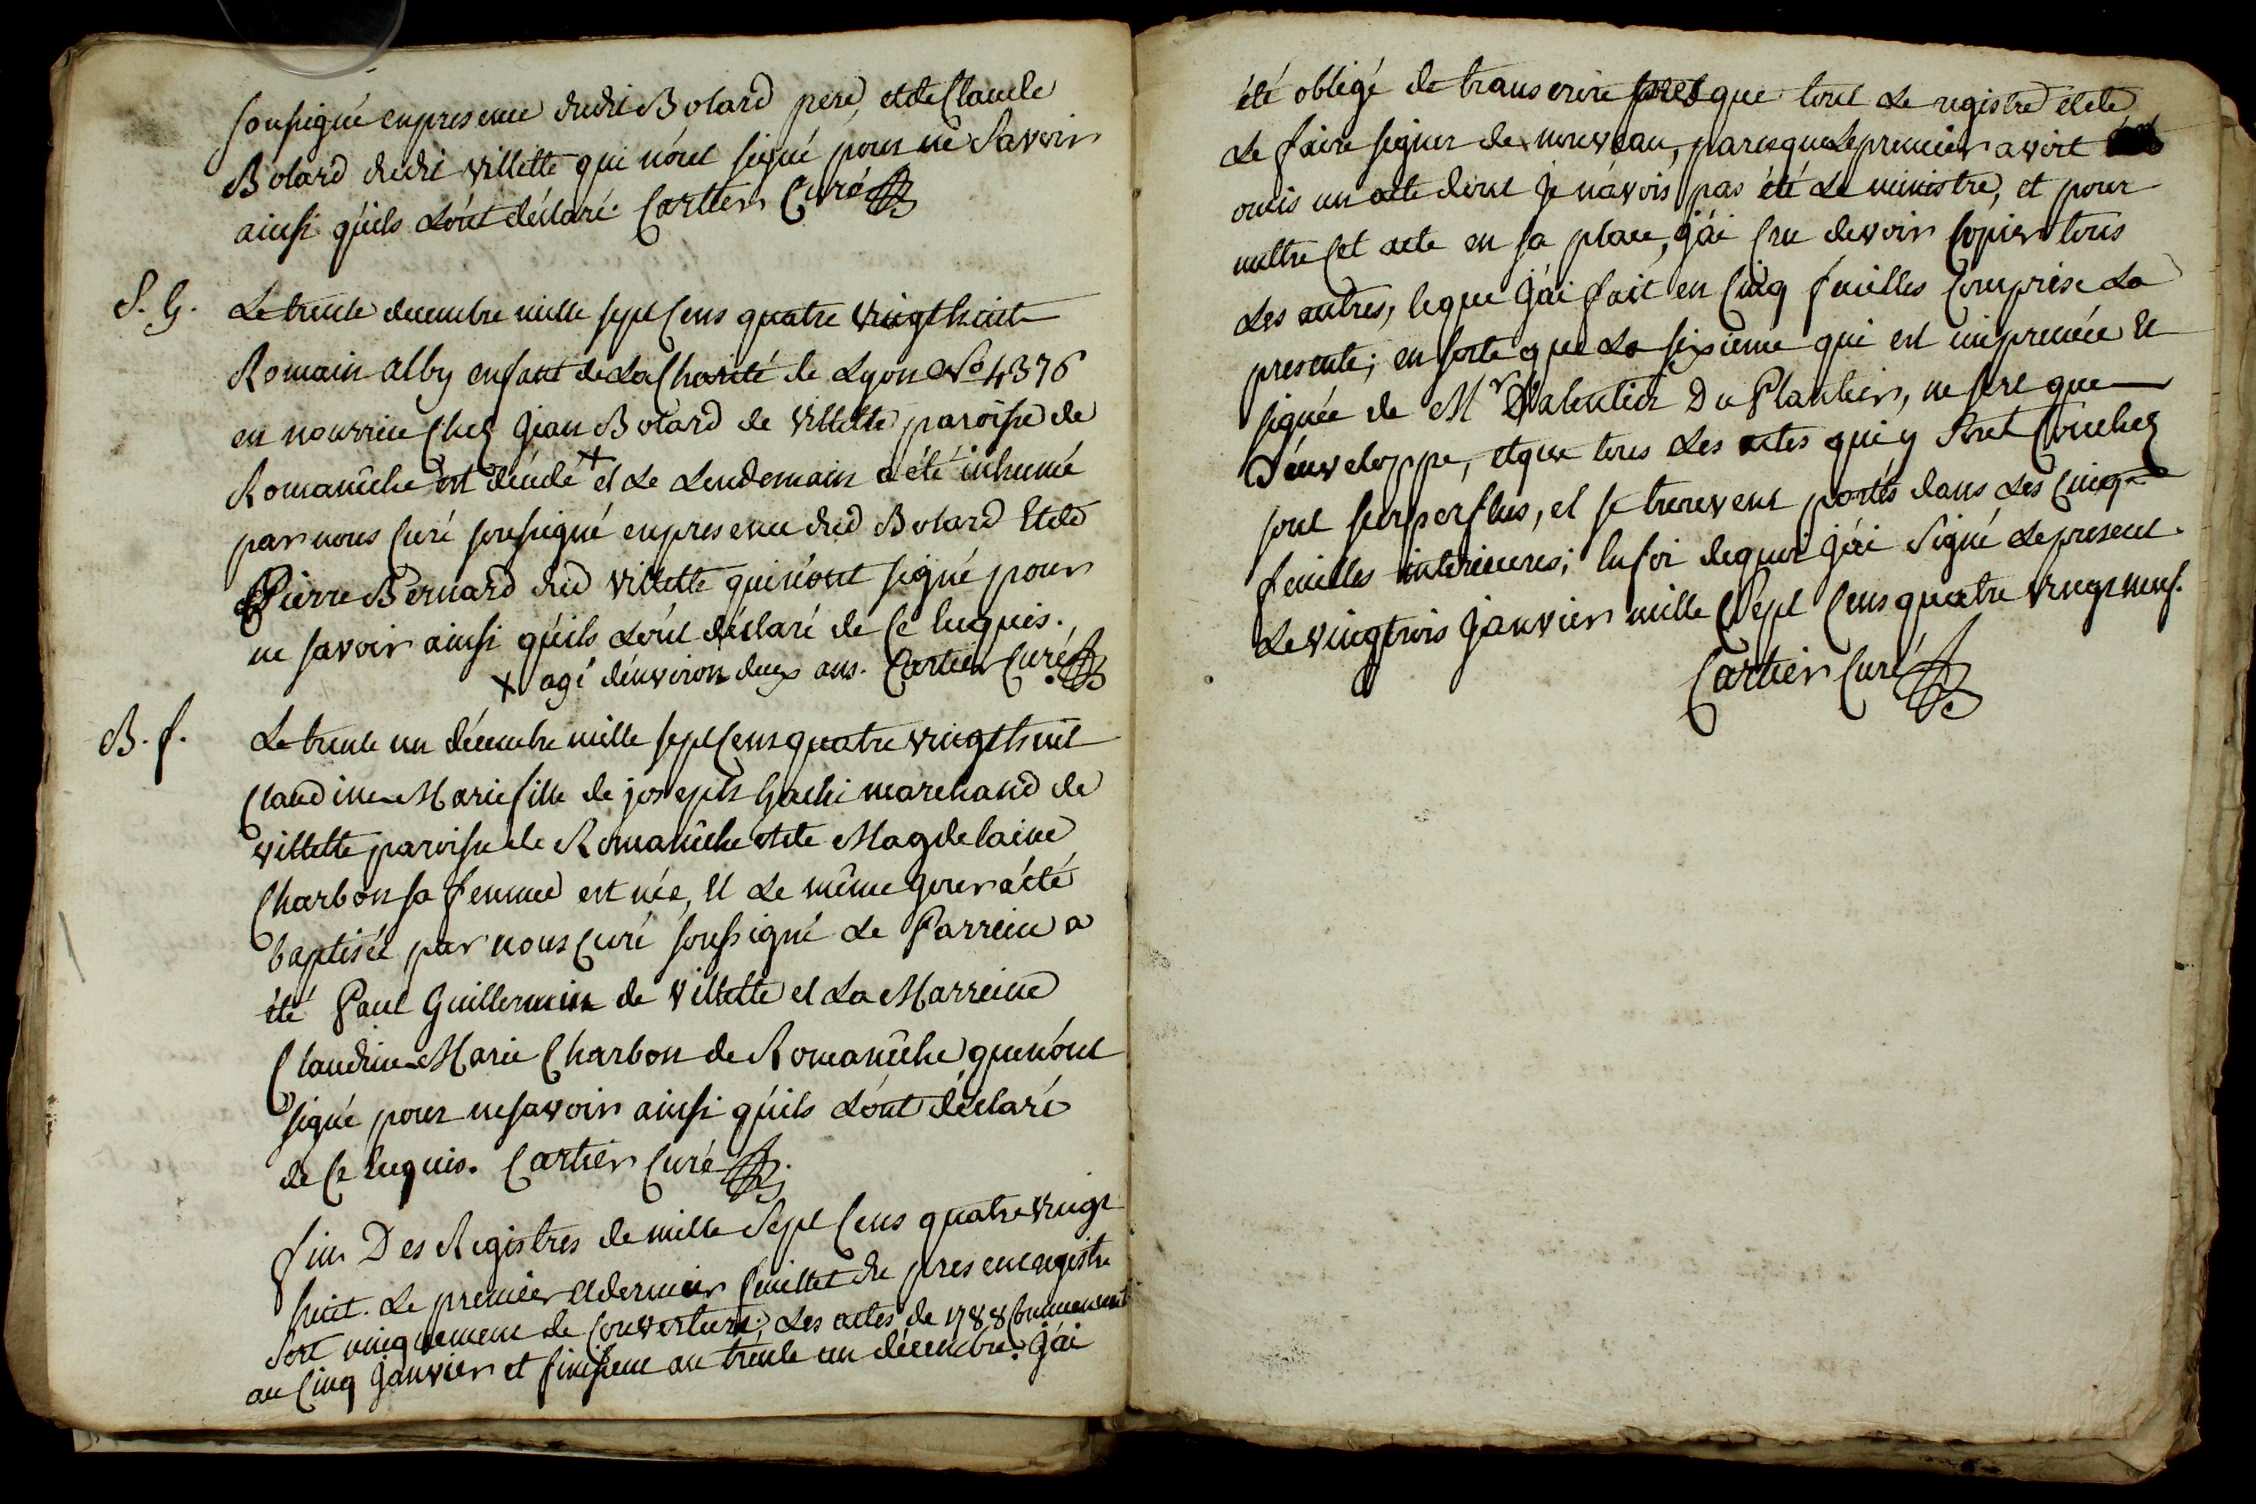 soussigné en presence dudit Bolard pere, et de Claude
Bolard dudit villette qui n'ont signé pour ne savoir
ainsi qu'ils l'ont déclaré. Cartier Curé
S. G. Le trente decembre mille sept cens quatre vingt huit
Romain alby enfant de la Charité de Lyon No 4376
en nourrice chez Jean Bolard de villette paroisse de
Romanêche est décédé + et le lendemain a été inhumé
par nous curé soussigné en presence dud Bolard et de
Pierre Bernard dud villette qui n'ont signé pour
ne savoir ainsi qu'ils l'ont déclaré de ce enquis.
+ agé d'environ deux ans. Cartier Curé
B. f. Le trente un décembre mille sept cens quatre vingt huit
Claudine Marie fille de joseph Gachi marchand de
villette paroisse de Romanêche et de Magdelaine
Charbon sa femme est née, et le même jour a été
baptisée par nous curé soussigné le Parrein a
été Paul Guillermin de villette et la Marreine
Claudine Marie Charbon de Romanêche qui n'ont
signé pour ne savoir ainsi qu'ils l'ont déclaré
de ce enquis. Cartier Curé
fin Des Registres de mille sept cens quatre vingt
huit. Le premier et dernier feuillet du present registre
sert uniquement de couverture; Les actes de 1788 commencent
au cinq janvier et finissent au trente un décembre. j'ai
été obligé de transcrire presque tout le registre et de
le faire signer de nouveau, parceque le premier avoit
omis un acte dont je n'avois pas été le ministre, et pour
mettre cet acte en sa place, j'ai cru devoir copier tous
les autres, ce que j'ai fait en cinq feuilles comprise la
presente; en sorte que la sixieme qui est imprimée et
signée de Mr Valentin Du Plantier, ne sert que
d'enveloppe, et que tous les actes qui y sont couchez
sont surperflus, et se trouvent portés dans les cinq
feuilles interieures; en foi de quoi j'ai signé le present.
Le vingtrois janvier mille sept cens quatre vingt neuf.
Cartier Curé